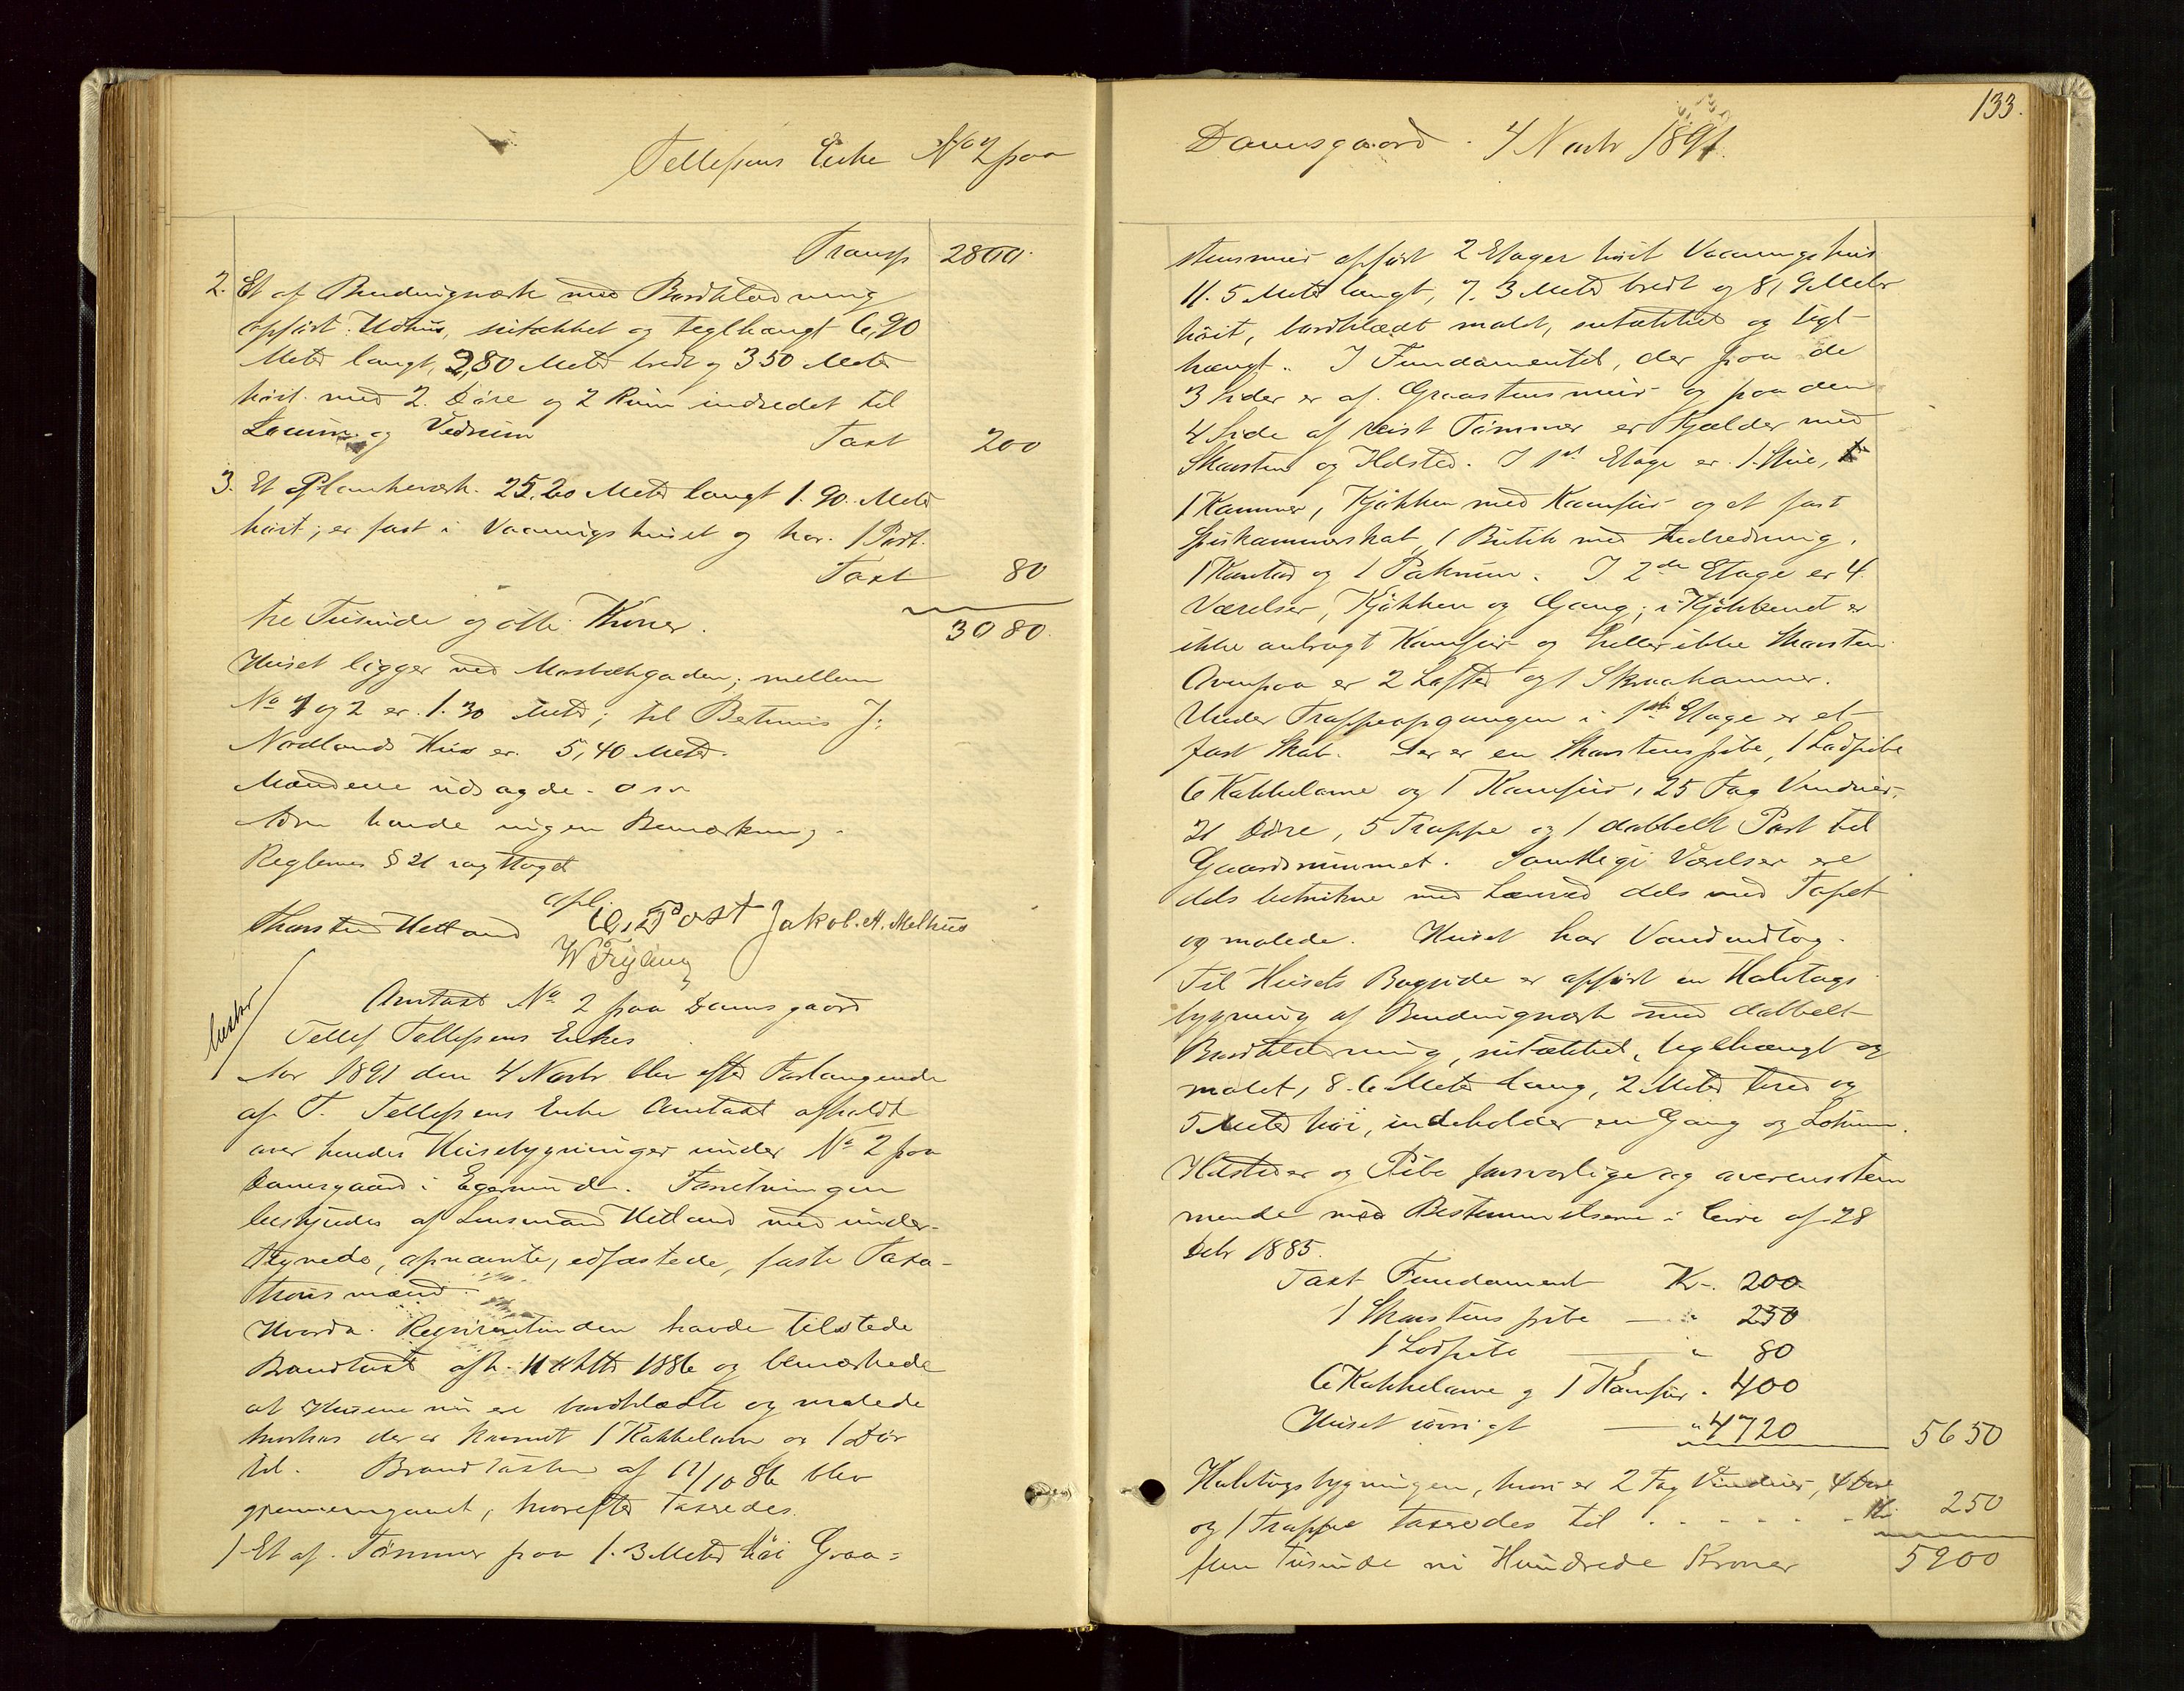 Tellefsens Enke No 2 paa
Transp 2800.
2. Et af Bindingværk med Bordklædning
opført Udhus, sutækket og teglhængt 6,90
Meter langt, 2,80 Meter bredt og 350 Meter
høit med 2 Døre og 2 Rum indredet til
Locum og Vedrum Taxt 200
3. Et Plankeværk 25.20 Meter langt 1.90 Meter
høit; er fast i Vaaningshuset og har 1 Port.
Taxt 80
tre Tusinde og otti Kroner. 3080.
Huset ligger ved Mosbækgaden; mellem
No 1 og 2 er 1.30 Meter; til Bertinius J:
Nodlands Hus er 5,40 Meter.
Mændene udsagde o s v
havde ingen Bemærkning.
Reglems § 21 iagttaget
afsl.
Thorsten Hetland O. Post Jakob. A. Melhus
W Fryling
Omtaxt No 2 paa Damsgaard
Tellef Tellefsens Enkes
Aar 1891 den 4 Novbr blev efter Forlangende
af T. Tellefsens Enke Omtaxt afholdt
over hendes Husebygninger under No 2 paa
Damsgaard i Egersund. Forretningen
bestyredes af Lensmand Hetland med under-
tegnede, opnævnte, edfæstede, faste Taxa-
tionsmænd.
Hvorda. Rekvirentinden havde tilstede
Brandtaxt afh. 11 Oktbr 1886 og bemærkede
at Husene nu ere bordklædte og malede
hvorhos der er kommet 1 Kakkelovn og 1 Dør
til. Brandtaxten af 11/10 86 blev
gjennemgaaet, hvorefter taxeredes.
1 Et af Tømmer paa 1.3 Meter høi Graa=
133.
Damsgaard. 4 Novbr 1891.
stensmur opført 2 Etager høit Vaaningshus
11.5 Meter langt, 7.3 Meter bredt og 8,9 Meter
høit, bordklædt malet, sutækket og tegl-
hængt. I Fundamentet, der paa de
3 Sider er af Graastensmur og paa den
4 Side af reist Tømmer er Kjælder med
Skorsten og Ildsted. I 1ste Etage er 1 Stue,
1 Kammer, Kjøkken med Komfur og et fast
Spiskammerskab, 1 Butik med Indredning,
1 Kontor og 1 Pakrum. I 2den Etage er 4
Værelser, Kjøkken og Gang; i Kjøkkenet er
ikke anbragt Komfur og heller ikke Skorsten.
Ovenpaa er 2 Lofter og 1 Skraakammer.
Under Trappeopgangen i 1ste Etage er et
fast Skab. Der er en Skorstenspibe, 1 Lodpibe
6 Kakkelovne og 1 Komfur, 25 Fag Vinduer,
21 Døre, 5 Trappe og 1 dobbelt Port til
Gaardsrummet. Samtlige Værelser ere
dels betrukne med Lærred dels med Tapet
og malede. Huset har Vandindlæg.
Til Husets Bagside er opført en Halvtags
bygning af Bindingværk med dobbelt
Bordklædning, sutækket, teglhængt og
malet, 8.6 Meter lang, 2 Meter bred og
5 Meter høi, indeholder en Gang og Lokum.
Ildsteder og Pibe forsvarlige og overensstem
mende med Bestemmelserne i Circ af 28
Debr 1885.
Taxt Fundament Kr. 200.
1 Skorstenspibe — " 250
1 Lodpibe — " 80
6 Kakkelovne og 1 Komfur " 400
Huset iøvrigt — " 4720 5650
Halvtagsbygningen, hvori er 2 Fag Vinduer, 4 Døre
og 1 Trappe taxeredes til . . . . . Kr. 250
fem tusinde ni Hundrede Kroner 5900